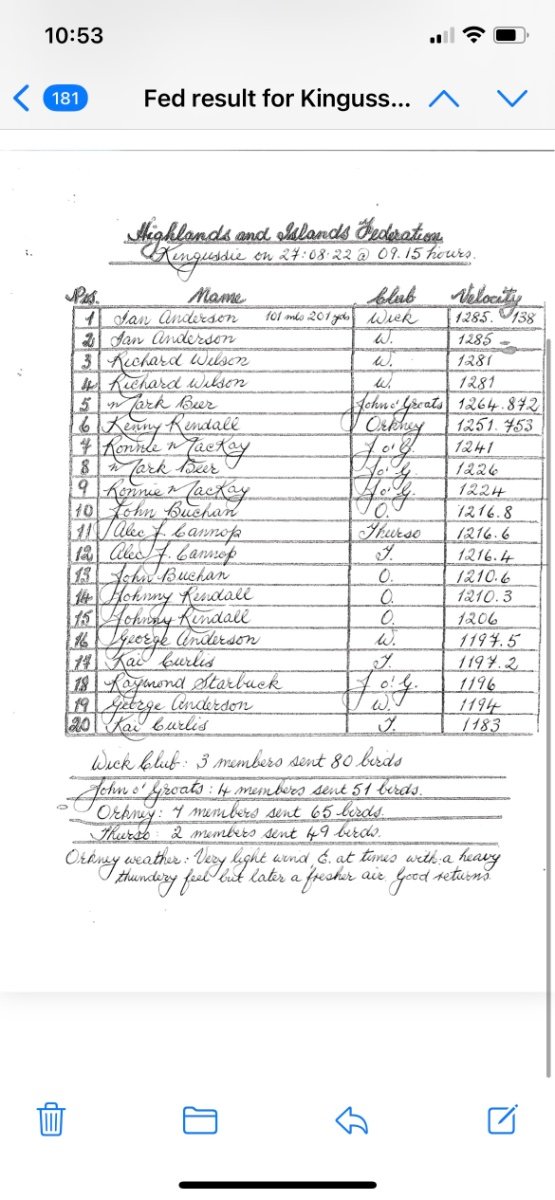 10:53
181 Fed result for Kinguss...
Highlands and Islands Federation
Kingussie on 27:08:22 @ 09.15 hours.
Pos. Name Club Velocity
1 Ian Anderson 101 mls 201 yds Wick 1285.138
2 Ian Anderson W. 1285
3 Richard Wilson W. 1281
4 Richard Wilson W. 1281
5 Mark Beer John o' Groats 1264.872
6 Kenny Rendall Orkney 1251.753
7 Ronnie MacKay J o' G. 1241
8 Mark Beer J o' G. 1226
9 Ronnie MacKay J o' G. 1224
10 John Buchan O. 1216.8
11 Alec J. Cannop Thurso 1216.6
12 Alec J. Cannop T. 1216.4
13 John Buchan O. 1210.6
14 Johnny Rendall O. 1210.3
15 Johnny Rendall O. 1206
16 George Anderson W. 1197.5
17 Kai Curlis T. 1197.2
18 Raymond Starbuck J o' G. 1196
19 George Anderson W. 1194
20 Kai Curlis T. 1183
Wick Club: 3 members sent 80 birds
John o' Groats: 4 members sent 51 birds.
Orkney: 7 members sent 65 birds.
Thurso: 2 members sent 49 birds.
Orkney weather: Very light wind, E. at times with a heavy
thundery feel but later a fresher air. Good returns